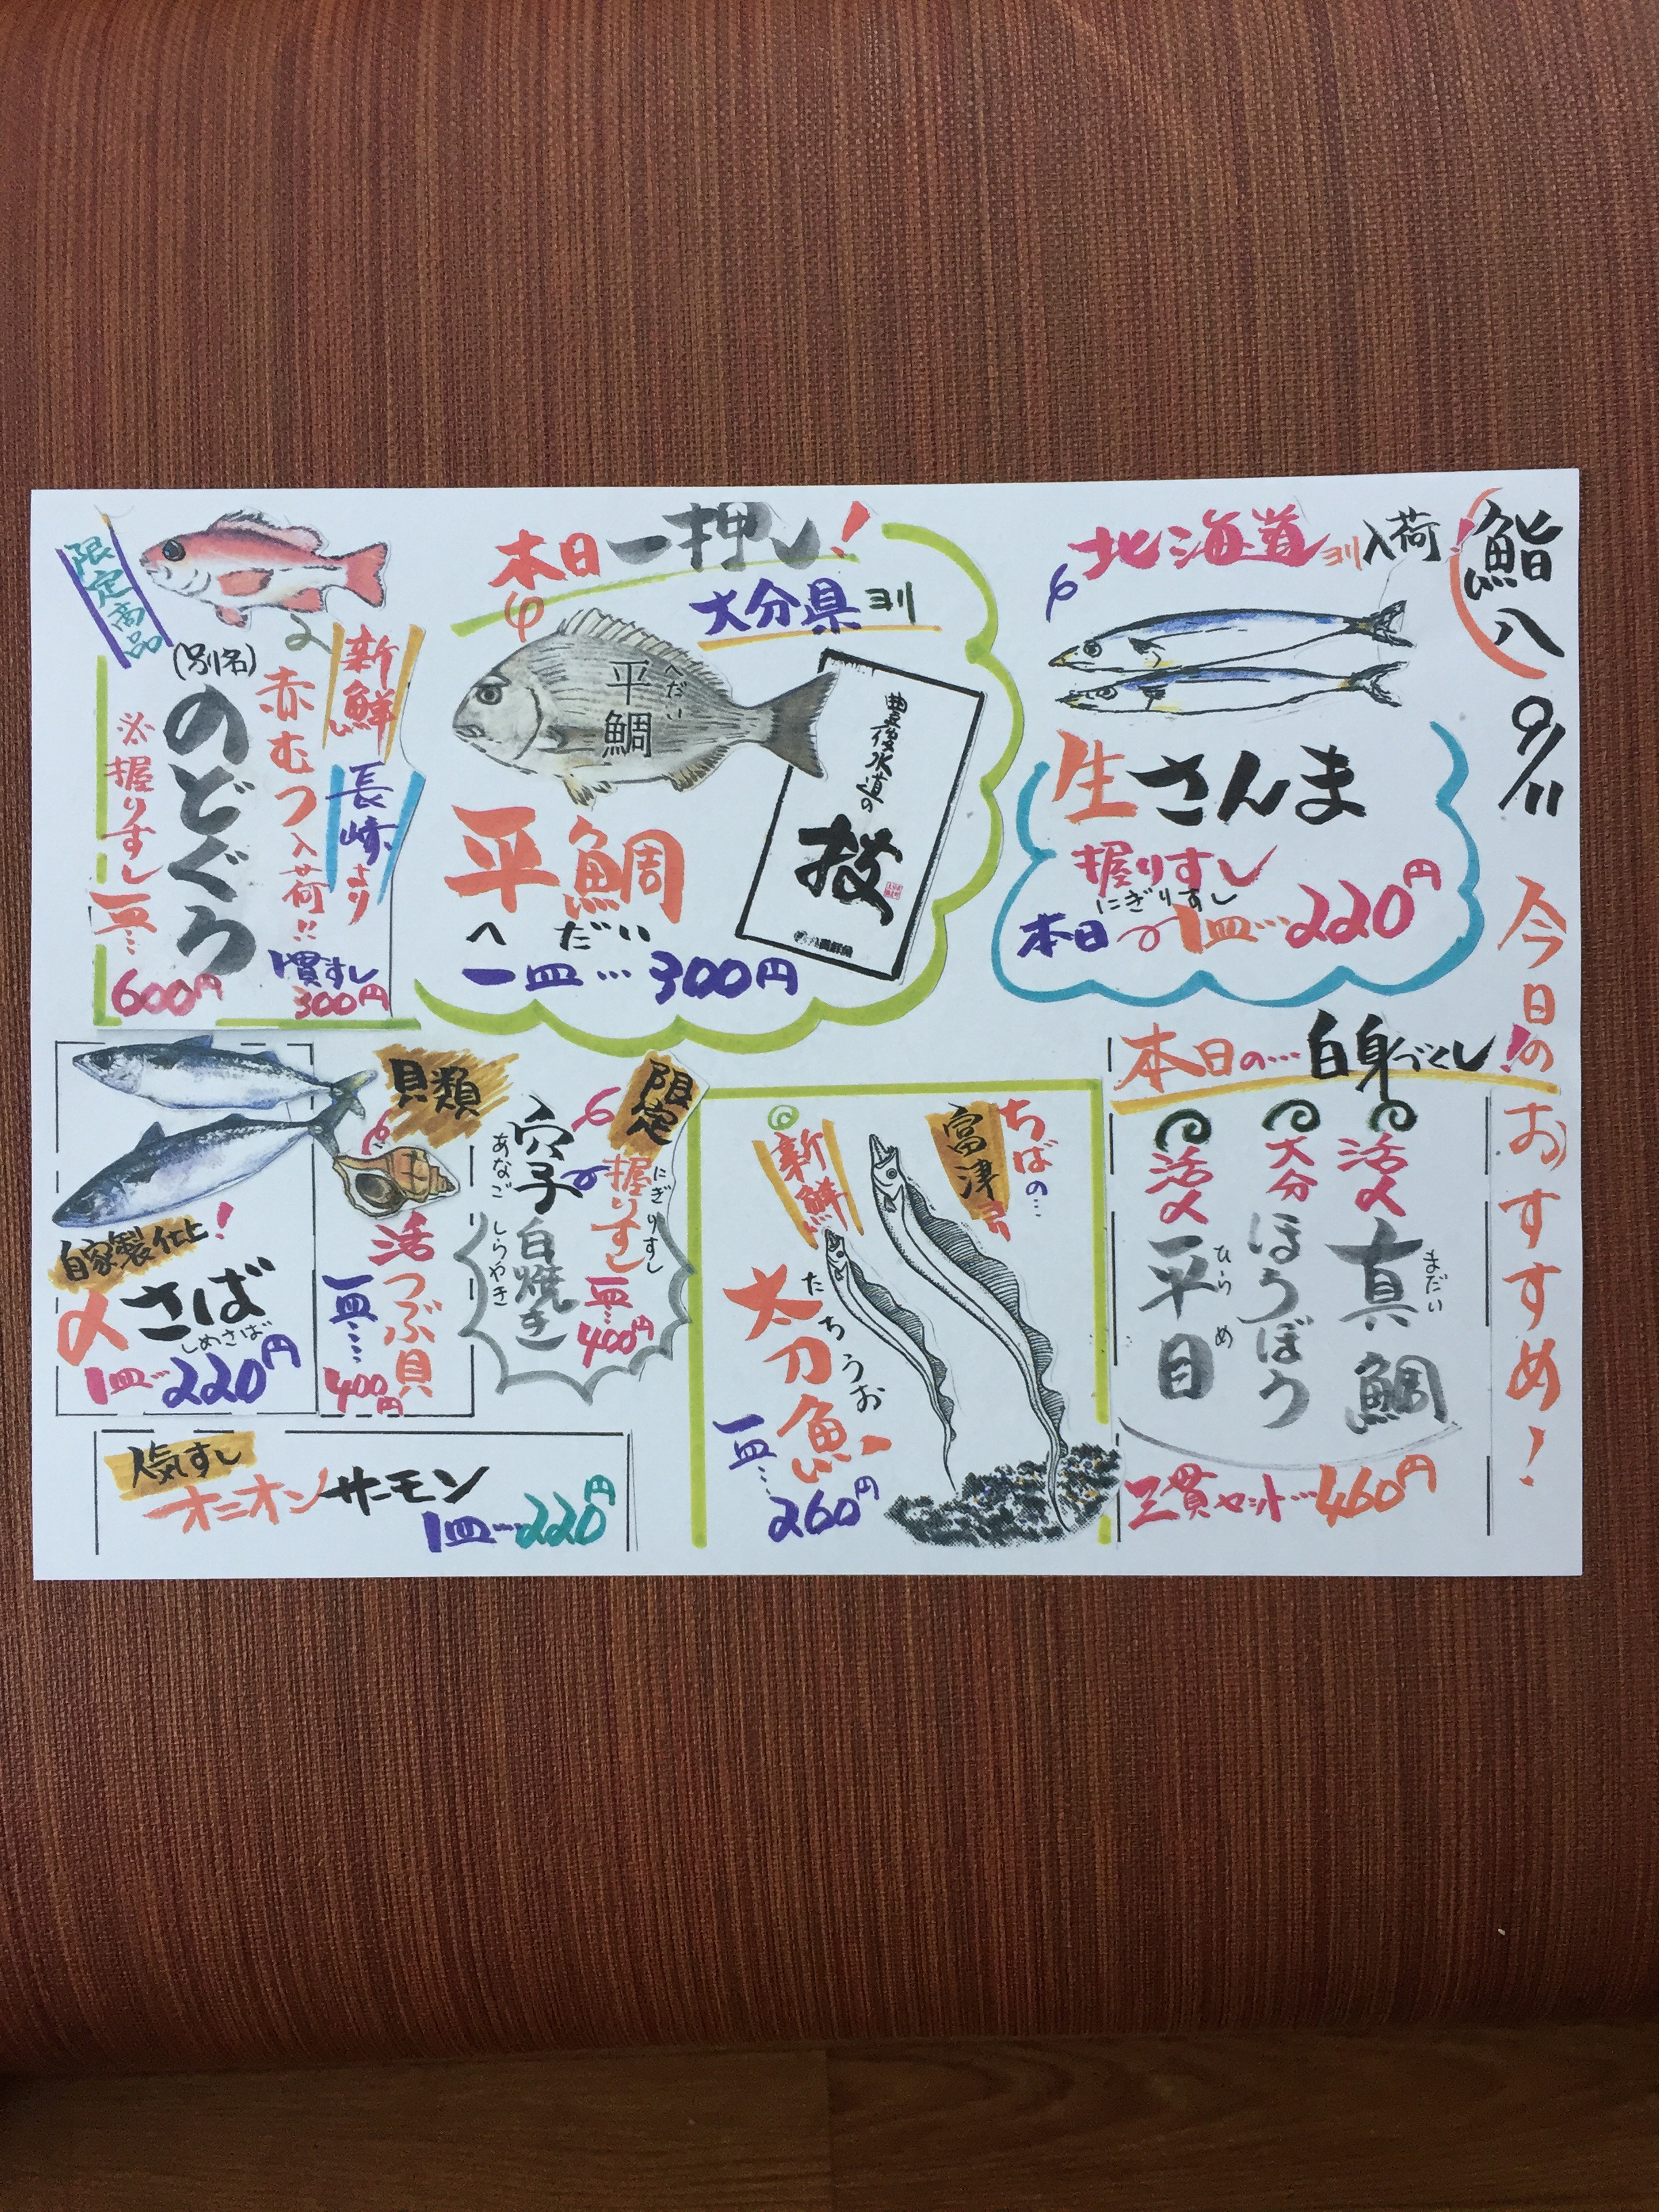 鮨八
9/11
今日のおすすめ!
北海道ヨリ入荷!
生さんま
握りすし
にぎりすし
本日1皿…220円
本日一押し!
大分県ヨリ
へだい
平鯛
豊後水道の
技
平鯛
へだい
一皿…300円
限定商品
新鮮
長崎より
赤むつ入荷!!
(別名)
のどぐろ
※握りすし
一皿…
600円
1貫すし
300円
本日の…白身づくし!
活〆
真鯛
まだい
大分
ほうぼう
活〆
平目
ひらめ
三貫セット…460円
ちばの…
富津
新鮮
太刀魚
たちうお
一皿…
260円
限定
握りすし
にぎりすし
一皿…
400円
穴子
あなご
白焼き
しらやき
貝類
活つぶ貝
一皿…
400円
自家製仕上!
〆さば
しめさば
1皿…220円
人気すし
オニオンサーモン
1皿…220円